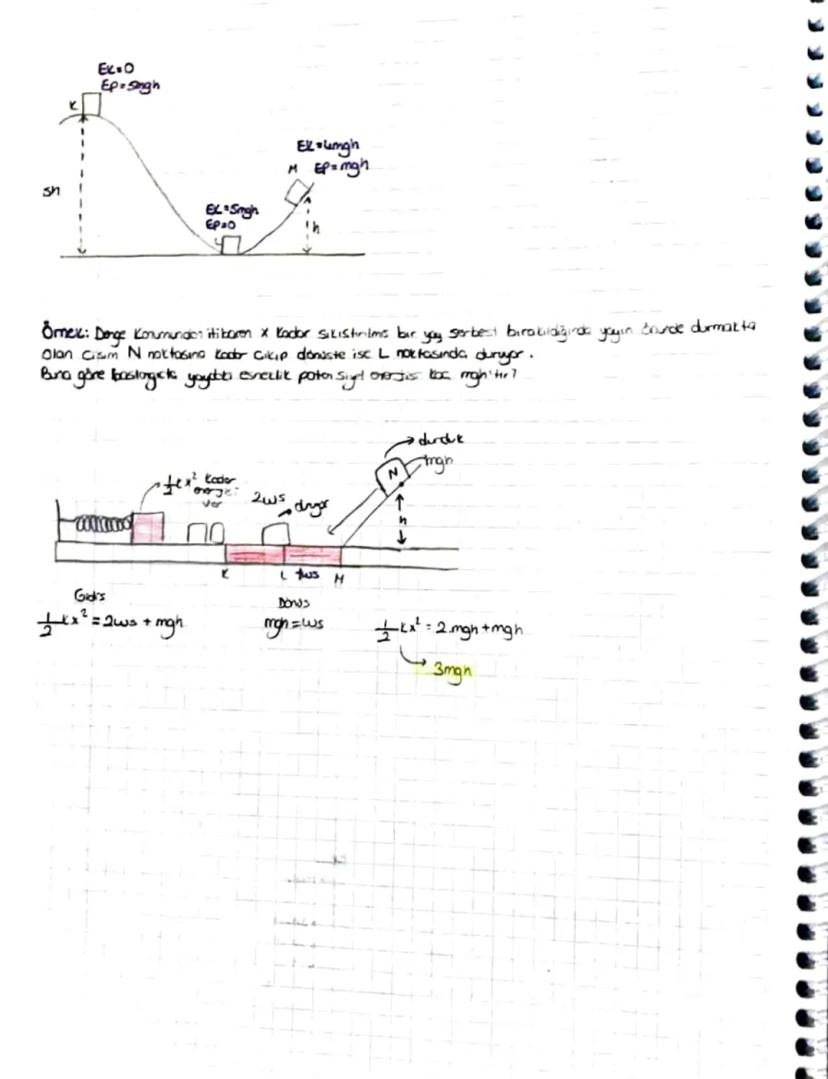 EK=0
EP=5mgh
K
5h
EK=4mgh
M EP=mgh
EK=5mgh
EP=0
h
Örnek: Denge konumundan itibaren x kadar sıkıştırılmış bir yay serbest bırakıldığında yayın önünde durmakta
olan cisim N noktasına kadar çıkıp dönüşte ise L noktasında duruyor.
Buna göre başlangıçta yaydaki esneklik potansiyel enerjisi kaç mgh'tır?
durduk
N
mgh
1/2 kx² kadar
enerji
var
2ws
duruyor
h
K L 1ws M
Gidiş
1/2 kx² = 2ws + mgh
Dönüş
mgh = ws
1/2 kx² = 2.mgh + mgh
3mgh